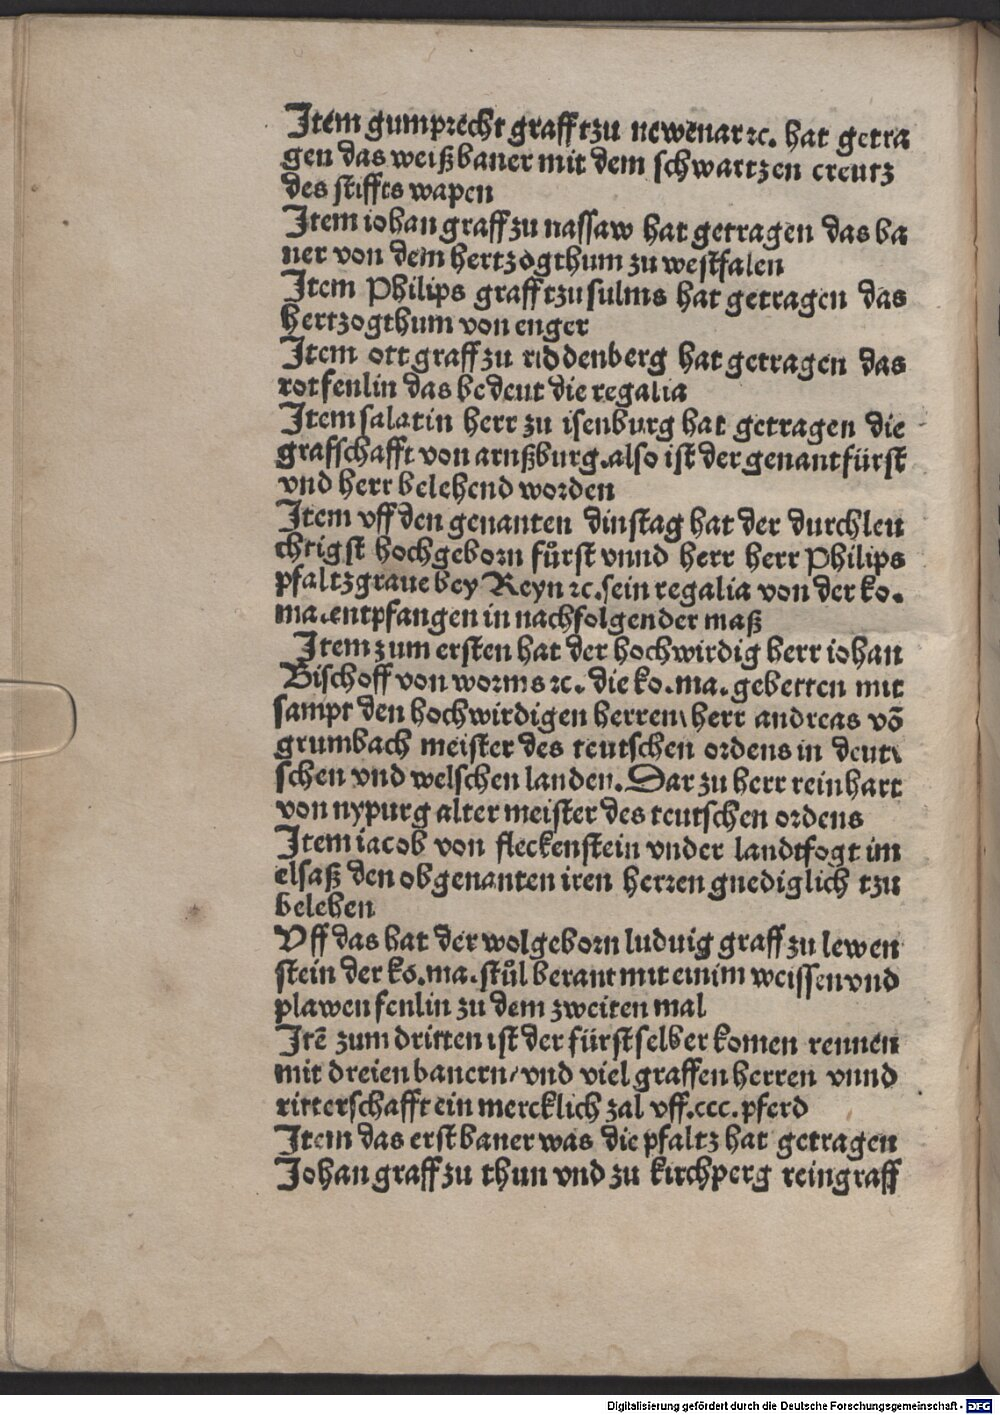 Item gumprecht graff tzu newenar ⁊c. hat getra
gen das weißbaner mit dem schwartzen creutz
des stiffts wapen
Item iohan graff zu nassaw hat getragen das ba
ner von dem hertzogthum zu westfalen
Item Philips graff tzu sulms hat getragen das
hertzogthum von enger
Item ott graff zu riddenberg hat getragen das
rotfenlin das bedeut die regalia
Item salatin herr zu isenburg hat getragen die
grafschafft von arnßburg. also ist der genant fürst
vnd herr belehend worden
Item vff den genanten dinstag hat der durchleu
chtigst hochgeborn fůrst vnnd herr herr Philips
pfaltzgraue bey Reyn ⁊c. sein regalia von der ko.
ma. entpfangen in nachfolgender maß
Item zum ersten hat der hochwirdig herr iohan
Bischoff von worms ⁊c. die ko. ma. gebetten mit
sampt den hochwirdigen herren herr andreas võ
grumbach meister des teutschen ordens in deut
schen vnd welschen landen. Dar zu herr reinhart
von nypurg alter meister des teutschen ordens
Item iacob von fleckenstein vnder landtfogt im
elsaß den obgenanten iren herren gnediglich tzu
belehen
Vff das hat der wolgeborn luduig graff zu lewen
stein der ko. ma. stůl berant mit einim weissen vnd
plawen fenlin zu dem zweiten mal
Itē zum dritten ist der fürst selber komen rennen
mit dreien banern/ vnd viel graffen herren vnnd
ritterschafft ein mercklich zal vff. ccc. pferd
Item das erst baner was die pfaltz hat getragen
Johan graff zu thun vnd zu kirchperg reingraff
Digitalisierung gefördert durch die Deutsche Forschungsgemeinschaft - DFG